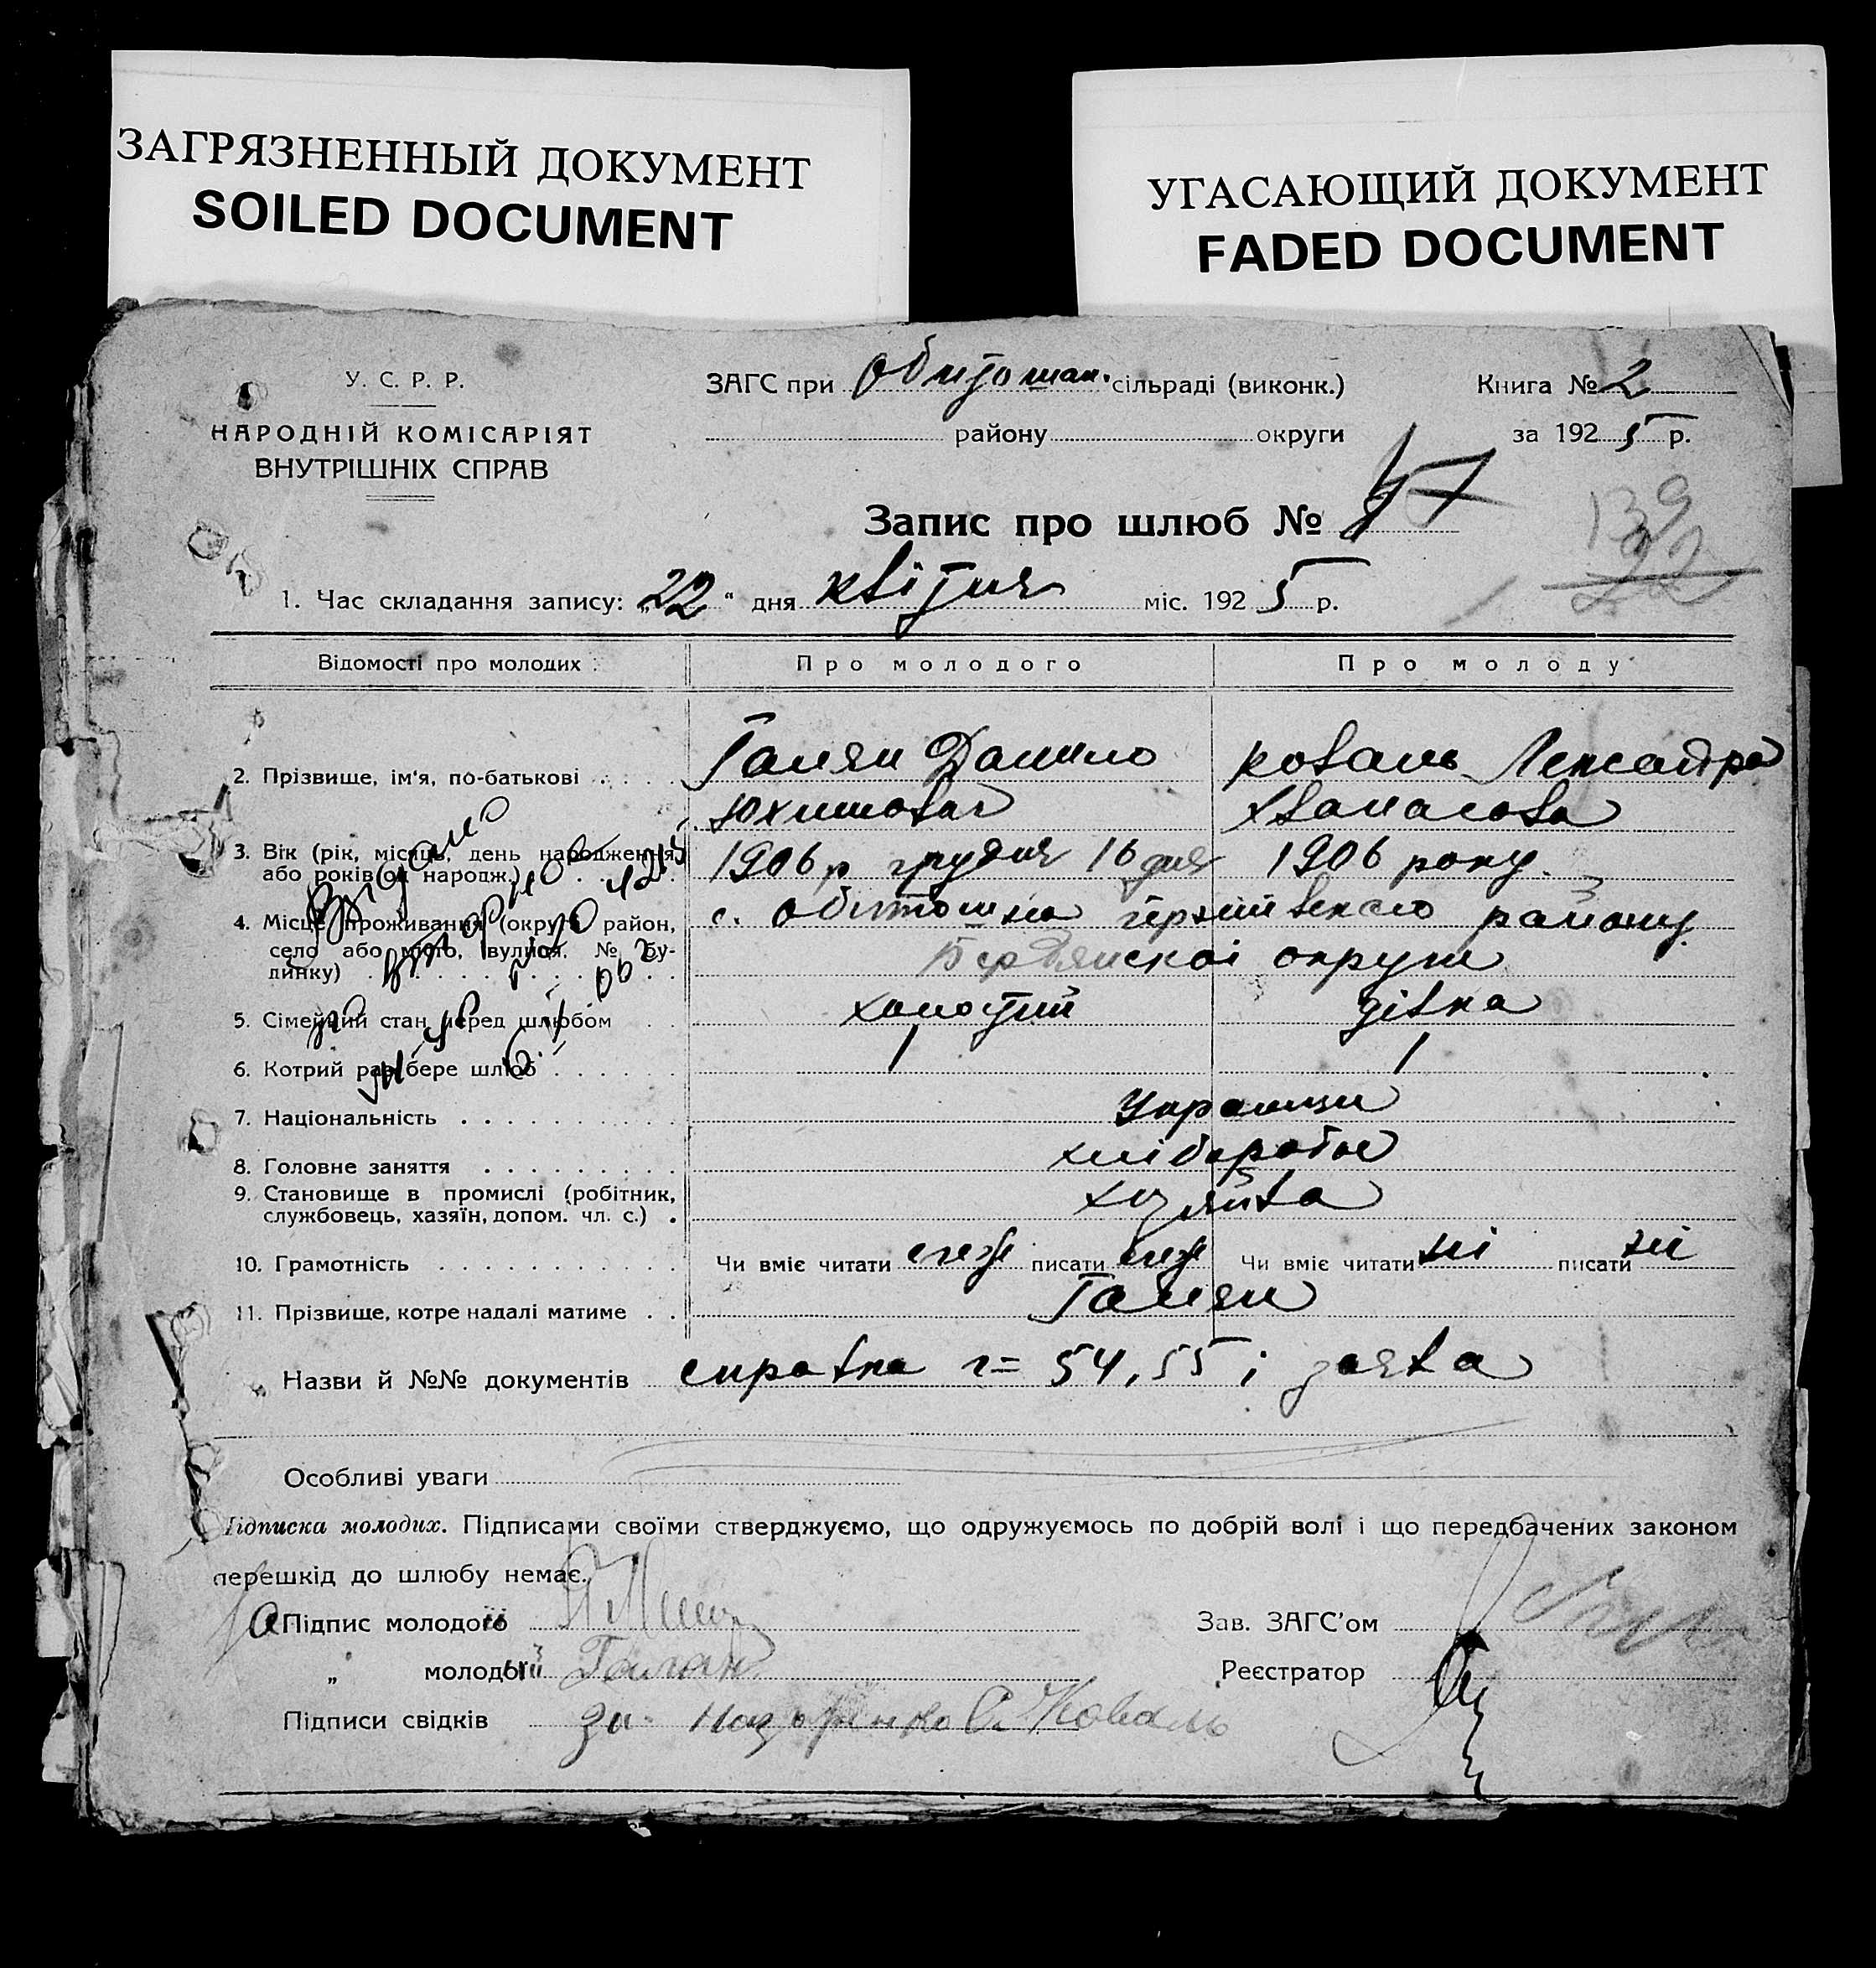 ЗАГРЯЗНЕННЫЙ ДОКУМЕНТ
SOILED DOCUMENT
УГАСАЮЩИЙ ДОКУМЕНТ
FADED DOCUMENT
У. С. Р. Р.
НАРОДНІЙ КОМІСАРІЯТ
ВНУТРІШНІХ СПРАВ
ЗАГС при Обитошан. сільраді (виконк.)
району округи
Книга № 2
за 1925 р.
Запис про шлюб №
139
1. Час складання запису: „22" дня квітня міс. 1925 р.
Відомості про молодих: Про молодого Про молоду
2. Прізвище, ім'я, по-батькові Галян Данило Коваль Лександра
Юхимовач Хванасова
3. Вік (рік, місяць, день народження 1906 р грудня 16 дня 1906 року.
або років од народж.)
4. Місце проживання (округа, район, с. Обиточна район
село або місто, вулиця, № бу-
динку) Бердянскоі округи
5. Сімейний стан перед шлюбом холостий дівка
6. Котрий раз бере шлюб 1 1
7. Національність Украинци
8. Головне заняття хліборобы
9. Становище в промислі (робітник,
службовець, хазяїн, допом. чл. с.) хозяйва
10. Грамотність Чи вміє читати писати Чи вміє читати ні писати ні
11. Прізвище, котре надалі матиме Галян
Назви й №№ документів справка 54, 55 і заява
Особливі уваги
Підписка молодих. Підписами своїми стверджуємо, що одружуємось по добрій волі і що передбачених законом
перешкід до шлюбу немає.
Підпис молодого
„ молодої Галян
Підписи свідків Коваль
Зав. ЗАГС'ом
Реєстратор